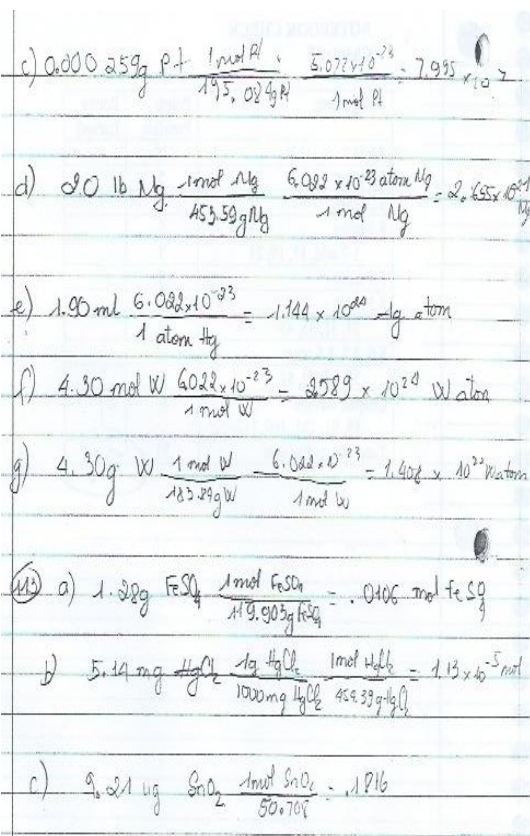 c) 0.000 259g Pt 1 mol Pt / 195.084g Pt 6.022x10^-23 / 1 mol Pt = 7.995 x 10
d) 20 lb Mg 1 mol Mg / 453.59g Mg 6.022 x 10^-23 atom Mg / 1 mol Mg = 2.655x10^24 Mg
e) 1.90 ml 6.022x10^-23 / 1 atom Hg = 1.144 x 10^24 Hg atom
f) 4.30 mol W 6.022x10^-23 / 1 mol W = 2.589 x 10^24 W atom
g) 4.30g W 1 mol W / 183.84g W 6.022x10^-23 / 1 mol W = 1.408 x 10^22 W atom
113 a) 1.28g FeSO4 1mol FeSO4 / 119.903g FeSO4 = .0106 mol FeSO4
b) 5.14 mg HgCl2 1g HgCl2 / 1000mg HgCl2 1mol HgCl2 / 454.39g HgCl2 = 1.13 x 10^-5 mol
c) 9.21 ug SnO2 1mol SnO2 / 50.708 = .1816